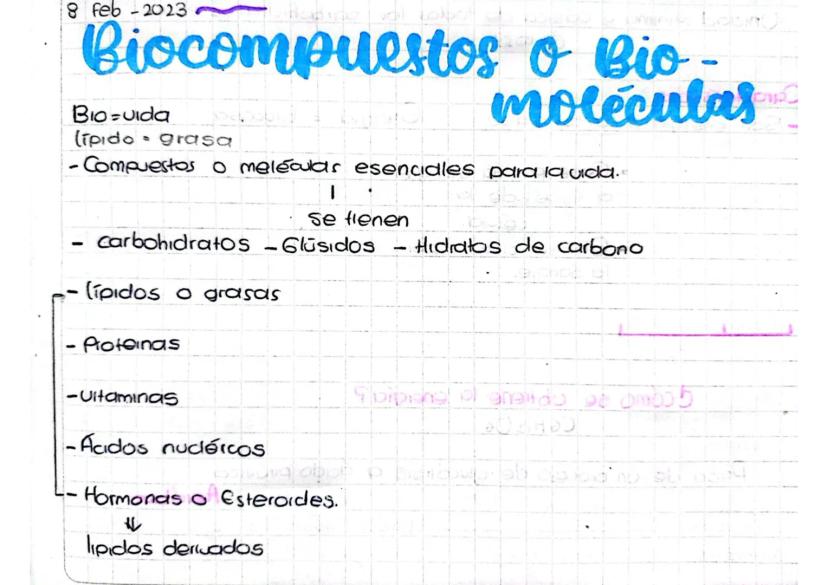 8 Feb - 2023
Biocompuestos o Bio-
moléculas
Bio = vida
lípido = grasa
- Compuestos o melécular esenciales para la vida.
se tienen
- carbohidratos - Glúsidos - Hidratos de carbono
- lípidos o grasas
- Proteinas
- vitaminas
- Ácidos nucléicos
- Hormonas o Esteroides.
lipidos derivados